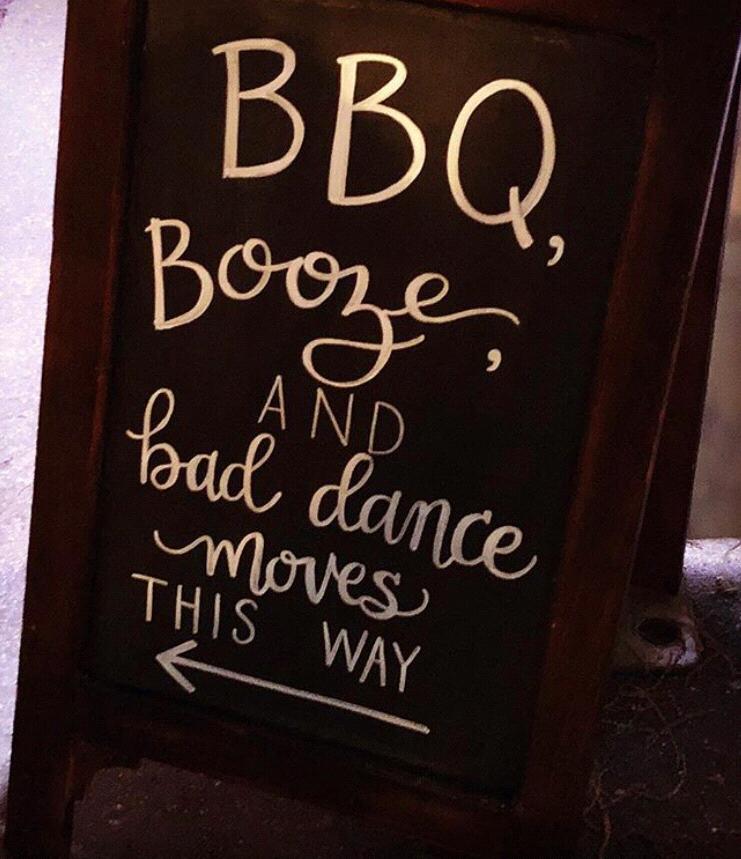 BBQ,
Booze,
AND
bad dance
moves
THIS WAY